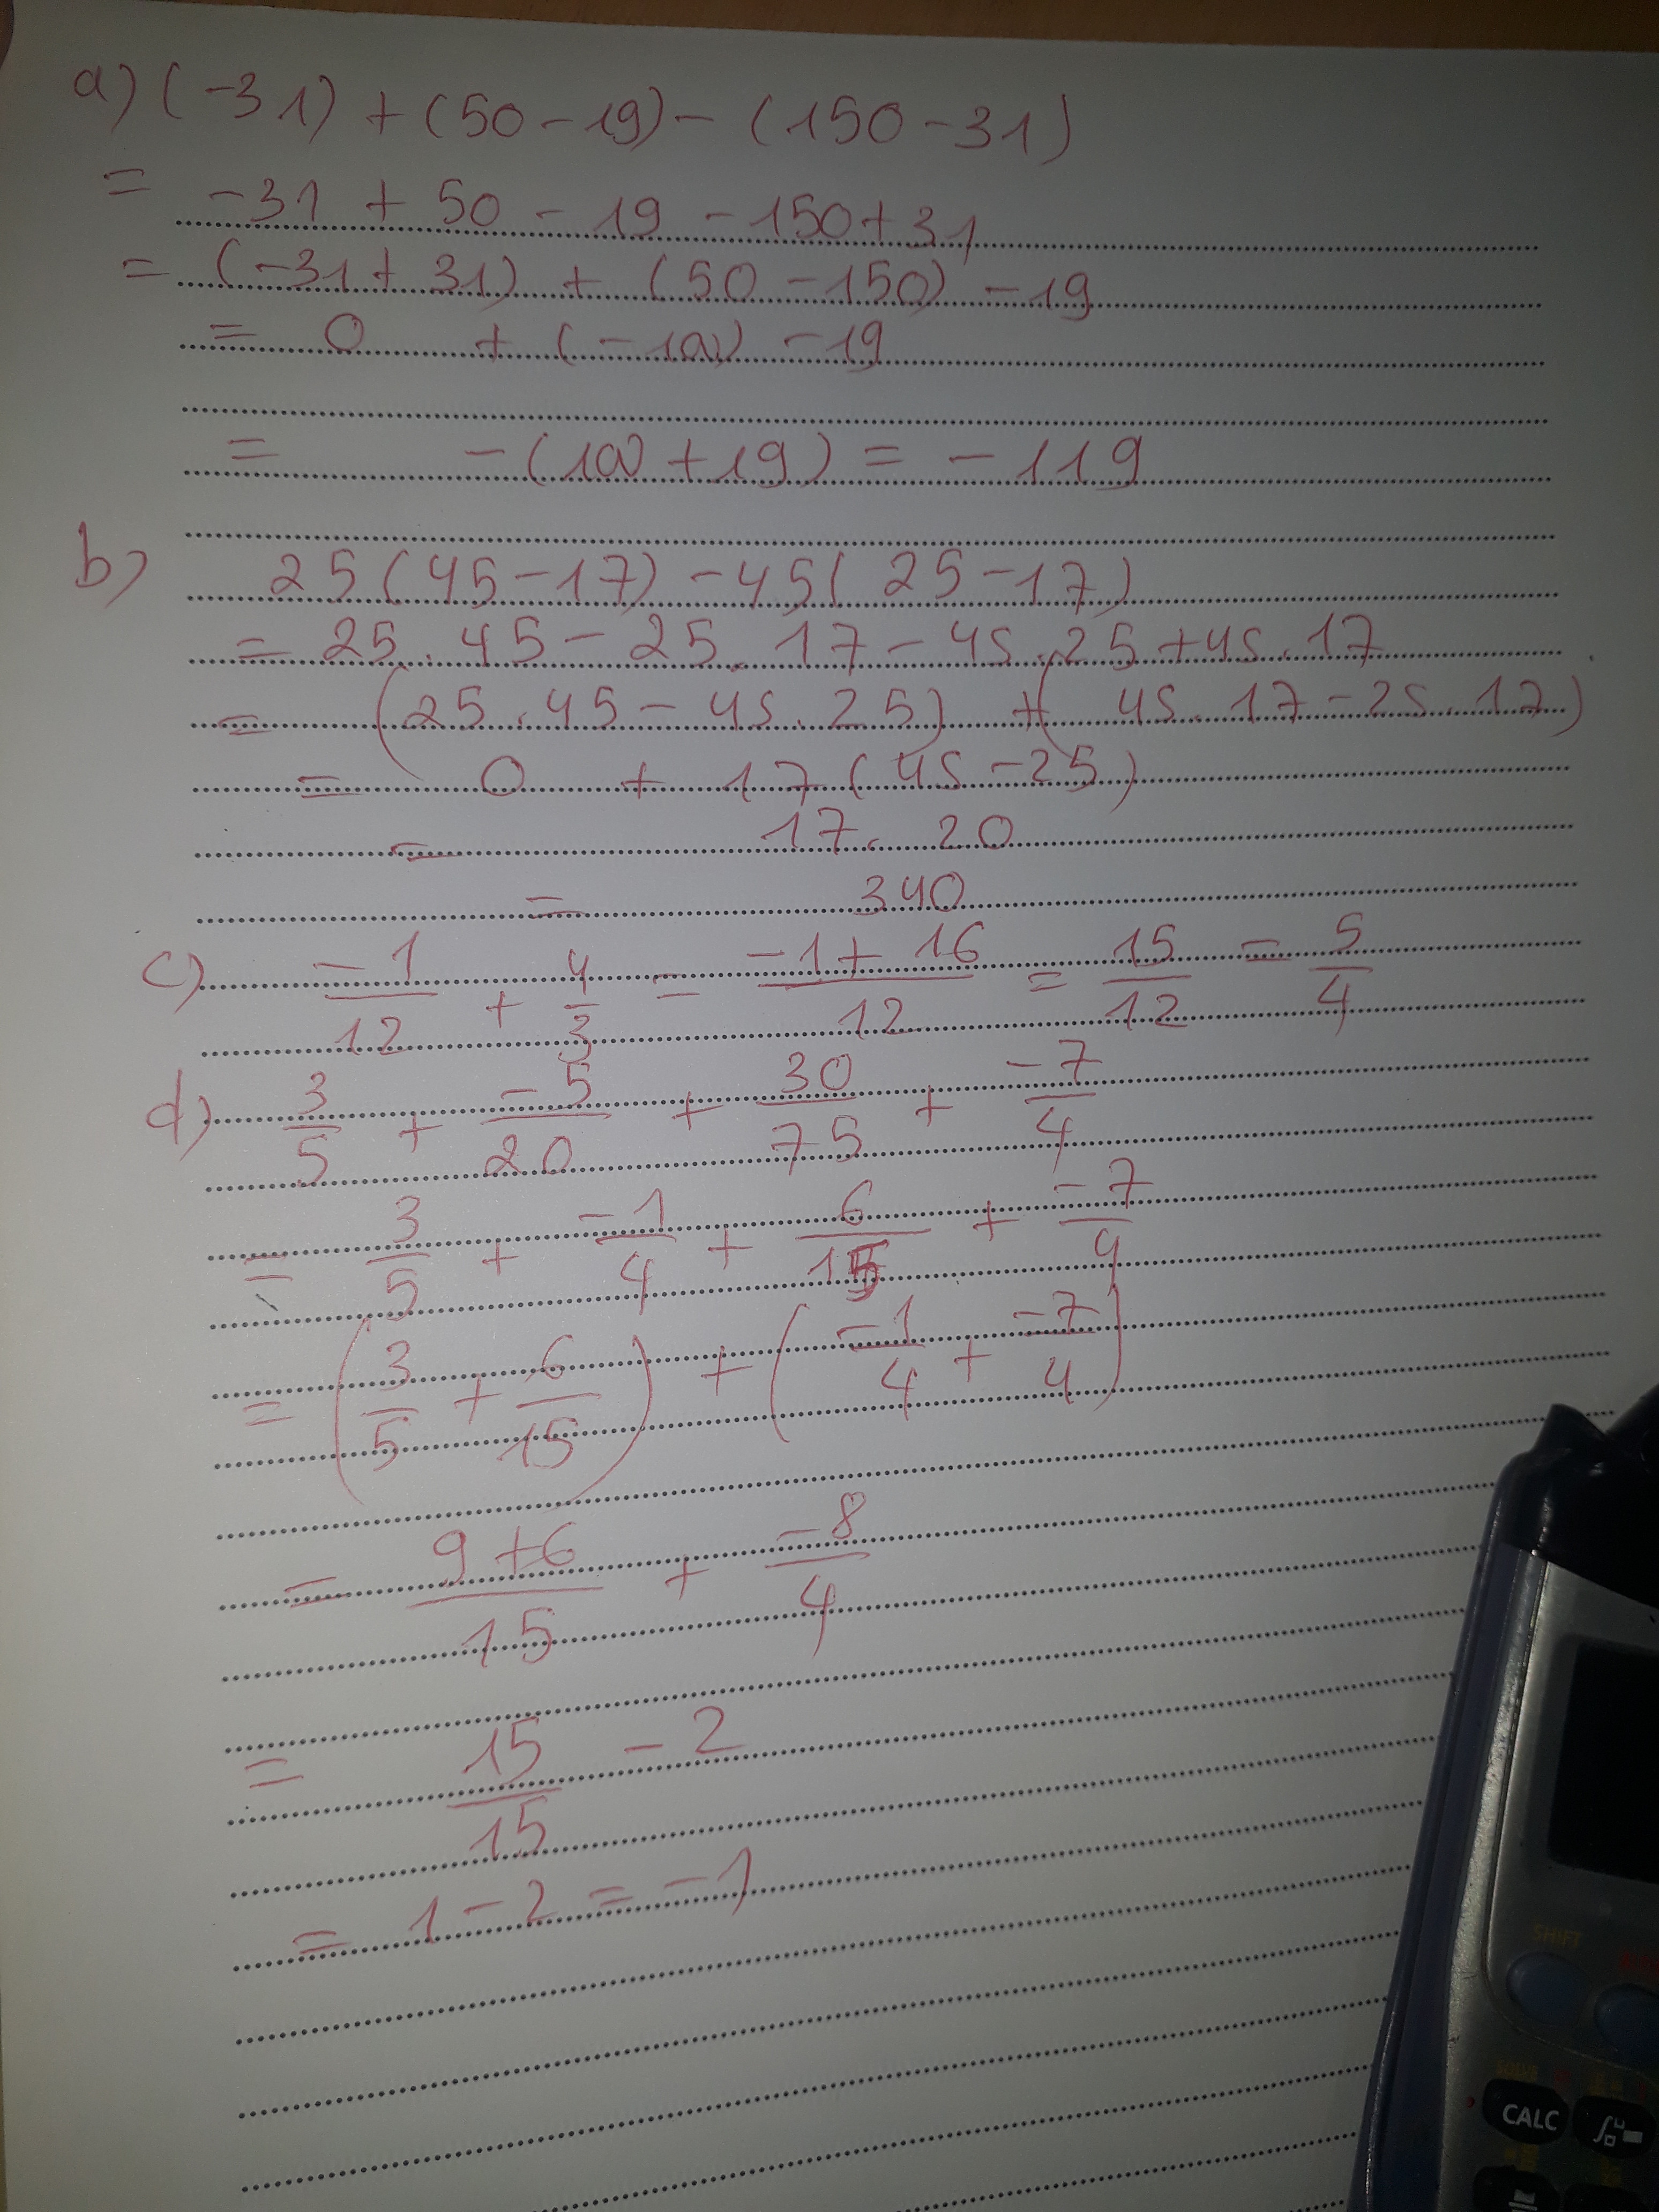 a) (-31) + (50 - 19) - (150 - 31)
= -31 + 50 - 19 - 150 + 31
= (-31 + 31) + (50 - 150) - 19
= 0 + (-100) - 19
= -(100 + 19) = -119
b) 25(45 - 17) - 45(25 - 17)
= 25.45 - 25.17 - 45.25 + 45.17
= (25.45 - 45.25) + (45.17 - 25.17)
= 0 + 17(45 - 25)
= 17.20
= 340
c) -1/12 + 4/3 = (-1 + 16)/12 = 15/12 = 5/4
d) 3/5 + -5/20 + 30/75 + -7/4
= 3/5 + -1/4 + 6/15 + -7/4
= (3/5 + 6/15) + (-1/4 + -7/4)
= (9 + 6)/15 + -8/4
= 15/15 - 2
= 1 - 2 = -1
SHIFT
CALC